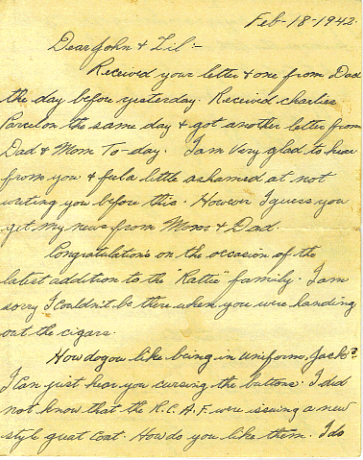 Feb-18-1942.
Dear John & Lil:-
Received your letter & one from Dad
the day before yesterday. Received charlies
Parcel on the same day & got another letter from
Dad & Mom To-day. I am Very glad to hear
from you & feel a little ashamed at not
writing you before this. However I guess you
get my news from Mom & Dad.
Congratulations on the occasion of the
latest addition to the "Rattie" family. I am
sorry I Couldn't be there when you were handing
out the cigars.
How do you like being in uniform, Jack?
I Can just hear you cursing the buttons. I did
not know that the R.C.A.F. were issuing a new
style great Coat. How do you like them. I do